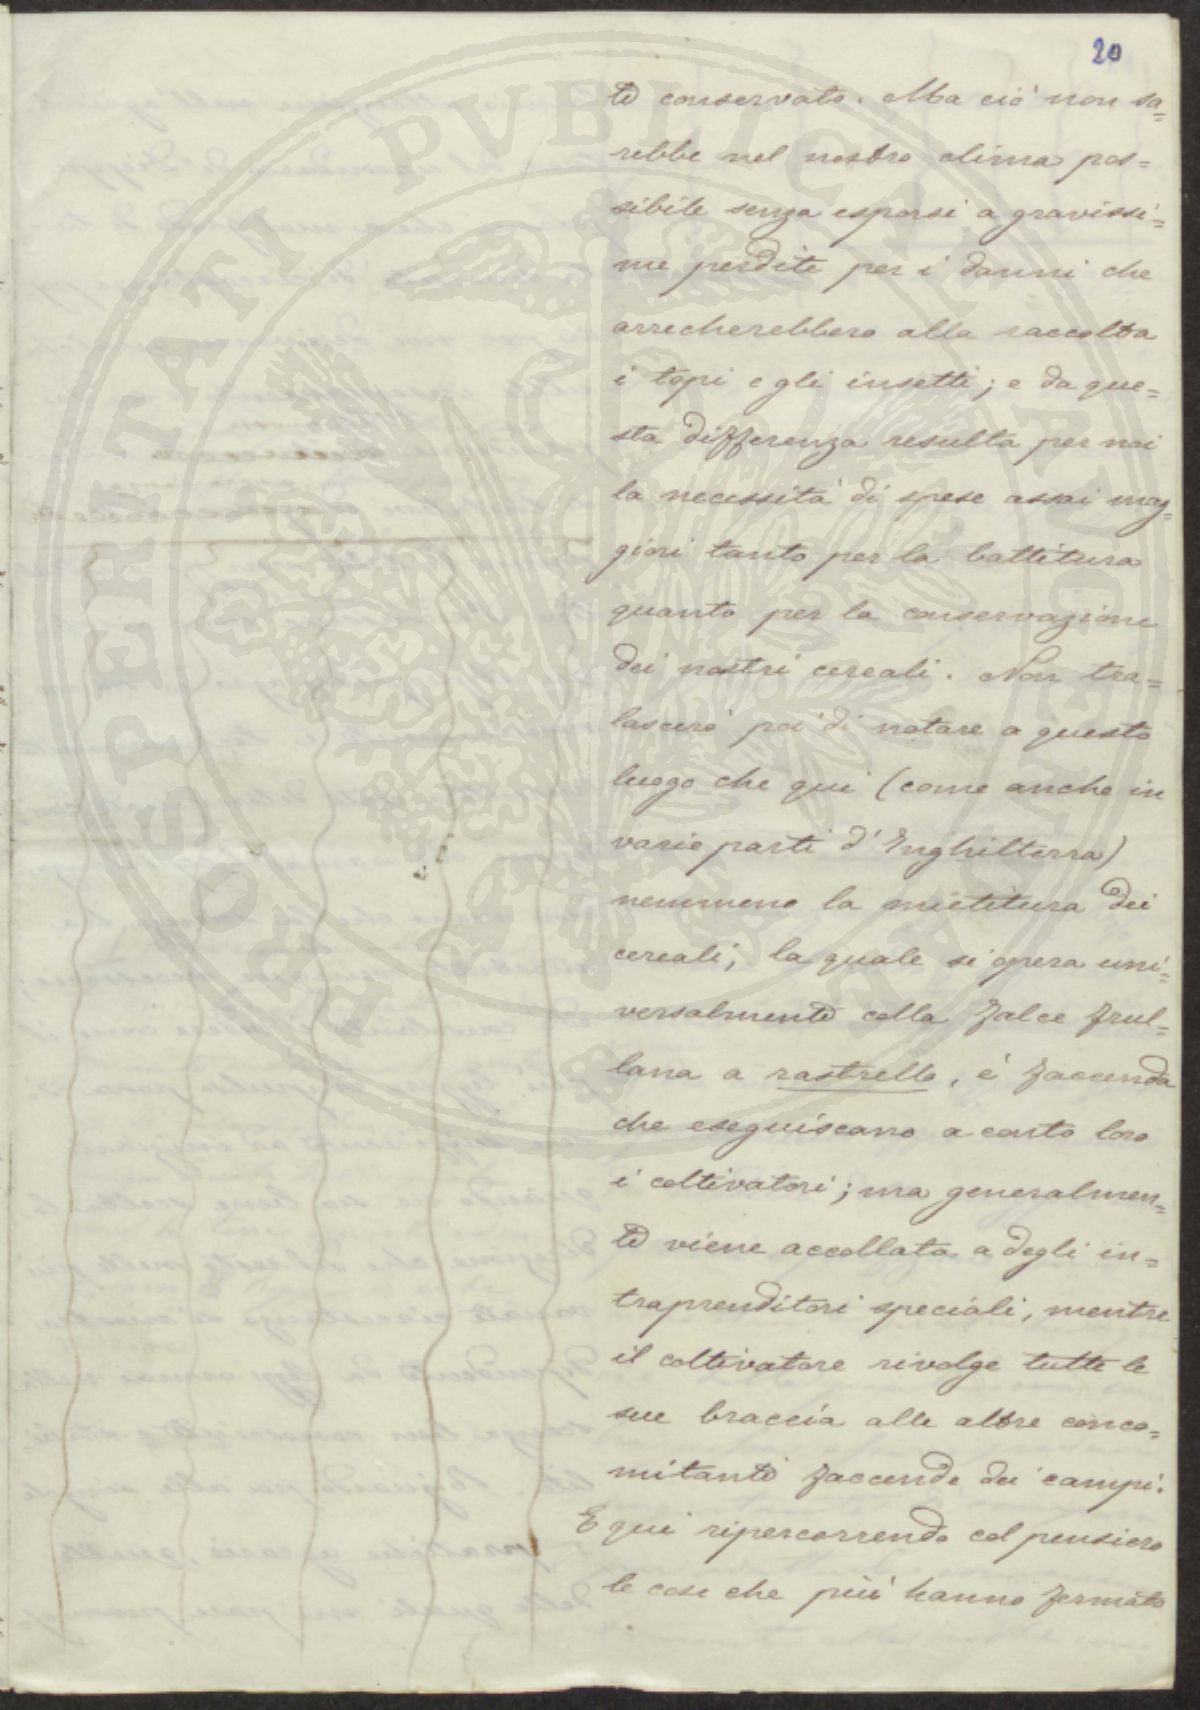 20
te conservato. Ma ciò non sa=
rebbe nel nostro clima pos=
sibile senza esporsi a gravissi=
me perdite per i danni che
arrecherebbero alla raccolta
i topi e gli insetti; e da que=
sta differenza resulta per noi
la necessità di spese assai mag=
giori tanto per la battitura
quanto per la conservazione
dei nostri cereali. Non tra=
lascerò poi di notare a questo
luogo che qui (come anche in
varie parti d'Inghilterra)
nemmeno la mietitura dei
cereali, la quale si opera uni=
versalmente colla falce frul=
lana a rastrello, è faccenda
che eseguiscano a conto loro
i coltivatori; ma generalmen=
te viene accollata a degli in=
traprenditori speciali, mentre
il coltivatore rivolge tutte le
sue braccia alle altre conco=
mitanti faccende dei campi.
E qui ripercorrendo col pensiero
le cose che più hanno fermato
PROSPERITATI PUBLICAE AUGENDAE